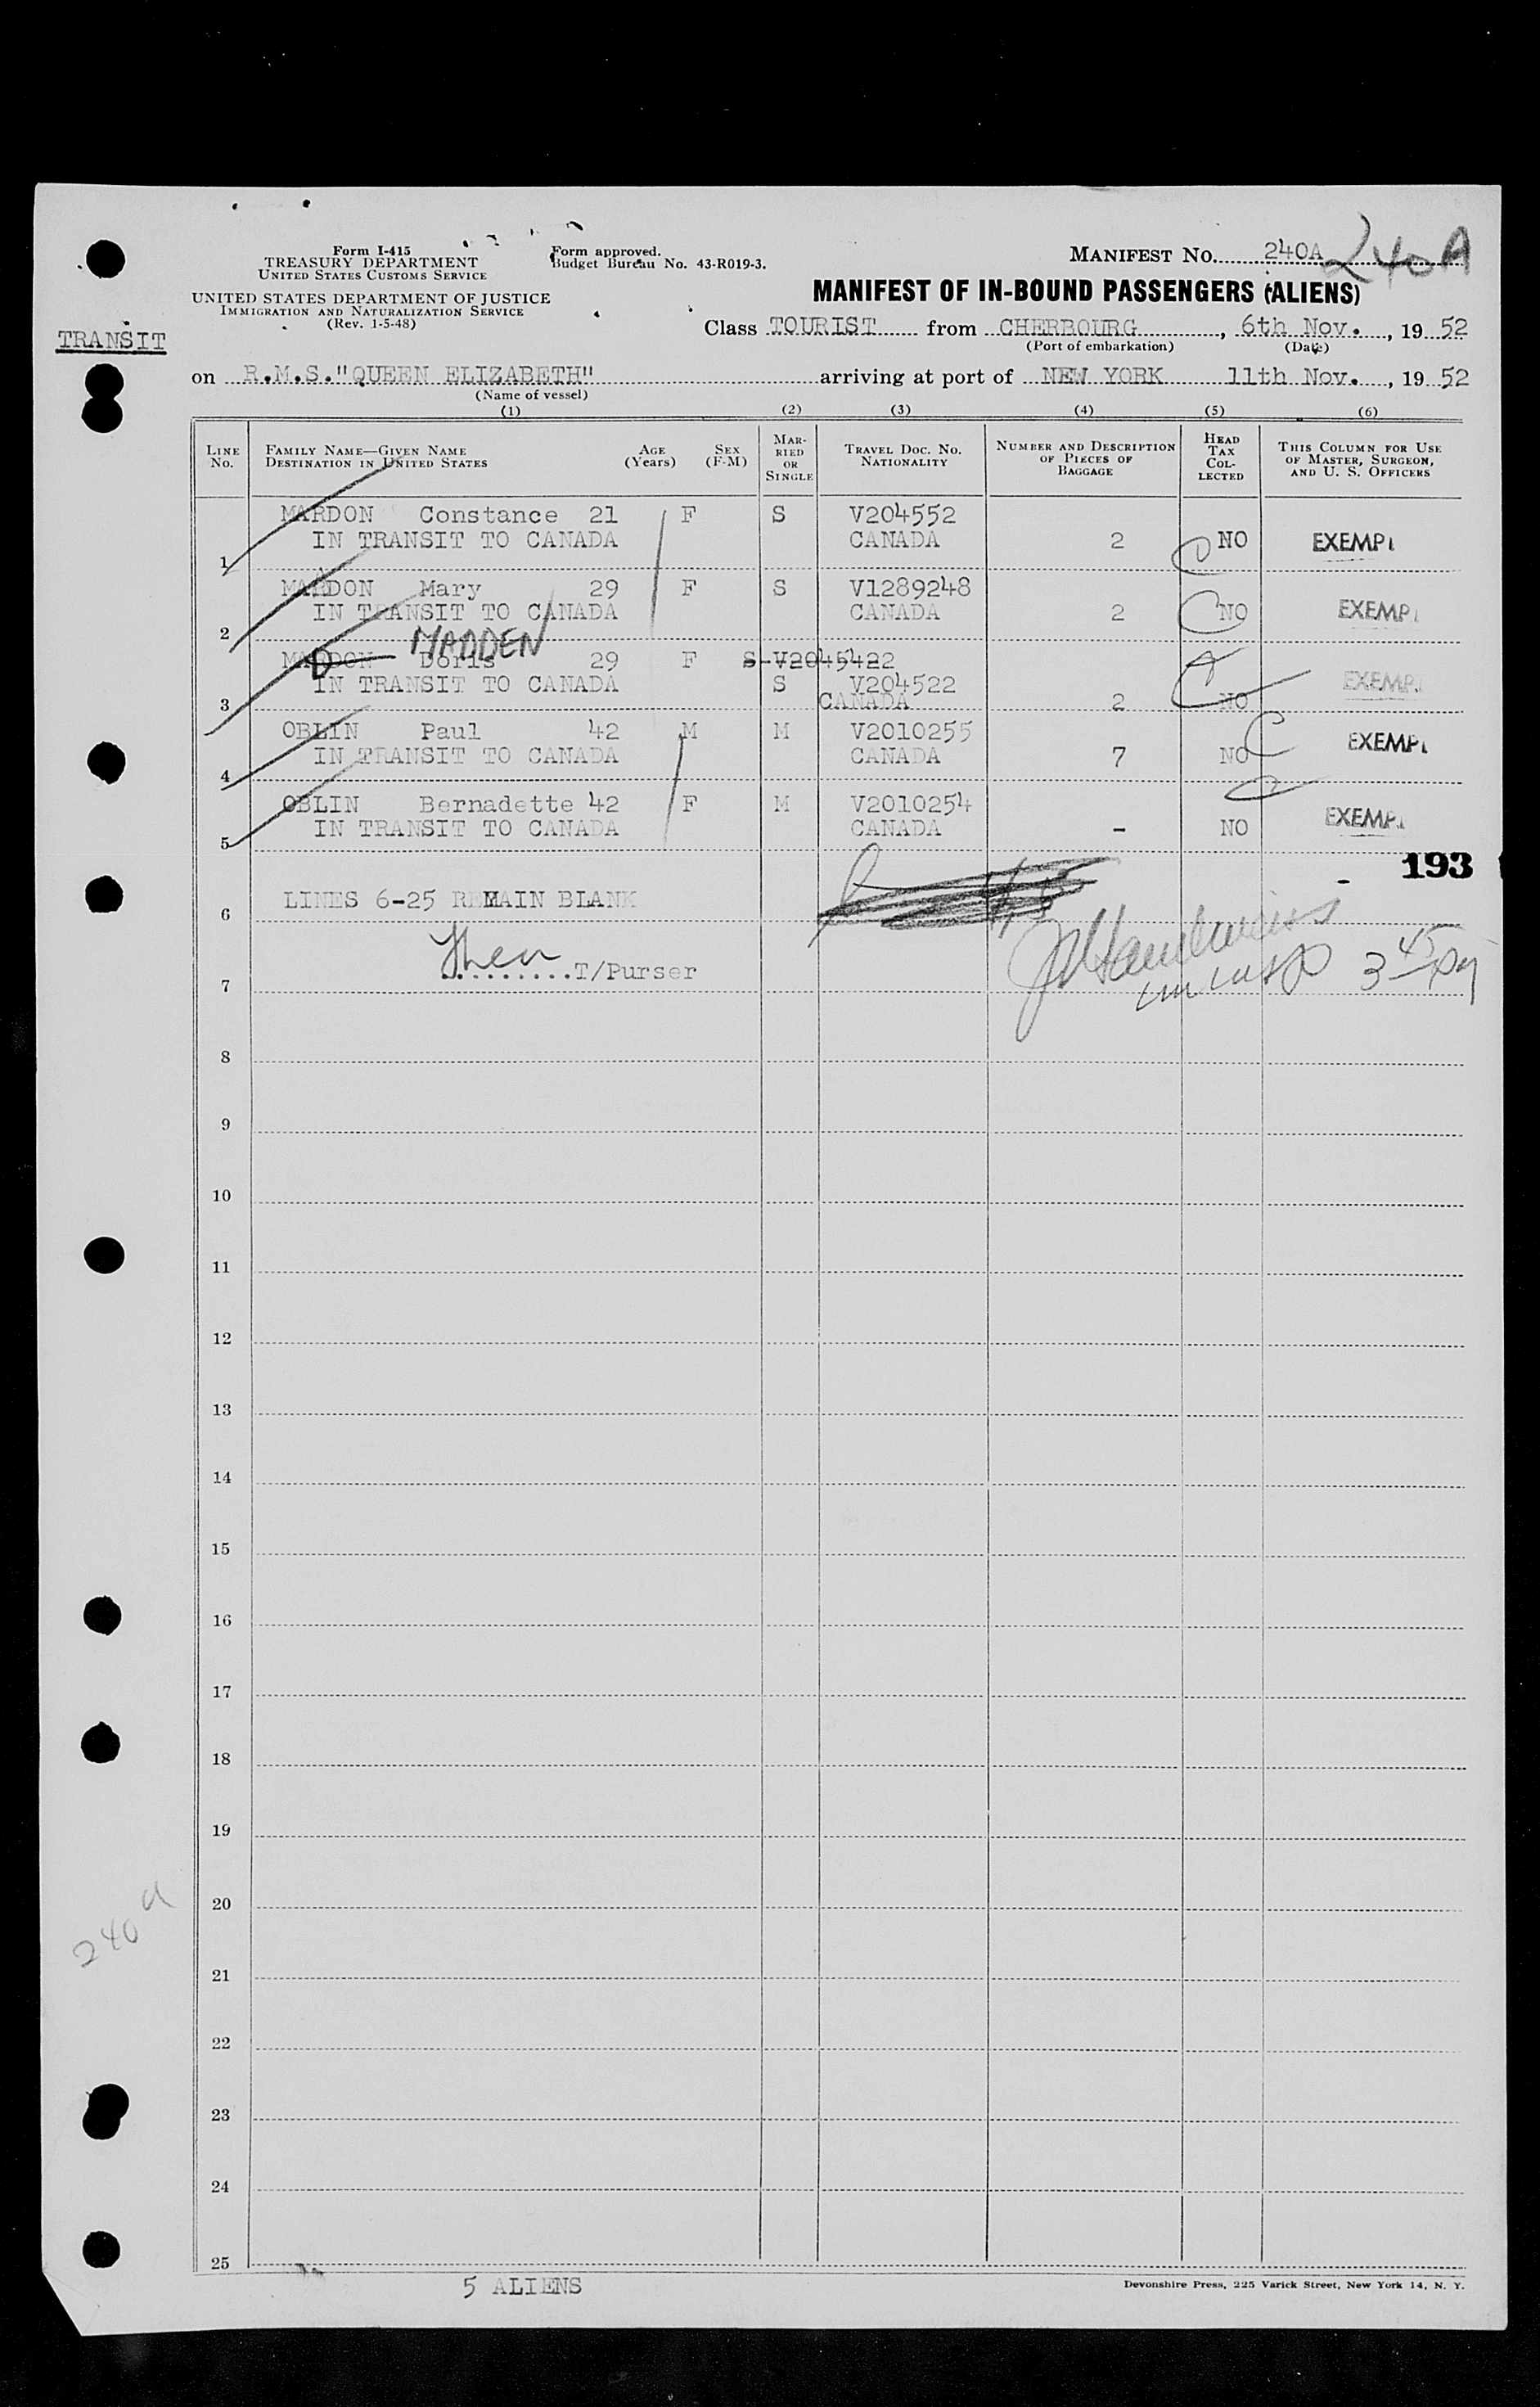 Form I-415
TREASURY DEPARTMENT
UNITED STATES CUSTOMS SERVICE
UNITED STATES DEPARTMENT OF JUSTICE
IMMIGRATION AND NATURALIZATION SERVICE
(Rev. 1-5-48)
Form approved.
Budget Bureau No. 43-R019-3.
MANIFEST NO. 240A 240A
MANIFEST OF IN-BOUND PASSENGERS (ALIENS)
TRANSIT
Class TOURIST from CHERBOURG, 6th Nov., 19 52
(Port of embarkation) (Date)
on R.M.S."QUEEN ELIZABETH" arriving at port of NEW YORK 11th Nov., 19 52
(Name of vessel)
(1) (2) (3) (4) (5) (6)
LINE NO. FAMILY NAME—GIVEN NAME DESTINATION IN UNITED STATES AGE (Years) SEX (F-M) MARRIED OR SINGLE TRAVEL DOC. NO. NATIONALITY NUMBER AND DESCRIPTION OF PIECES OF BAGGAGE HEAD TAX COLLECTED THIS COLUMN FOR USE OF MASTER, SURGEON, AND U. S. OFFICERS
MARDON Constance 21 F S V204552
1 IN TRANSIT TO CANADA CANADA 2 NO EXEMPT
MARDON Mary 29 F S V1289248
2 IN TRANSIT TO CANADA CANADA 2 NO EXEMPT
MADDEN
MARDON Doris 29 F S-V2045422
3 IN TRANSIT TO CANADA S V204522 CANADA 2 NO EXEMPT
OBLIN Paul 42 M M V2010255
4 IN TRANSIT TO CANADA CANADA 7 NO EXEMPT
OBLIN Bernadette 42 F M V2010254
5 IN TRANSIT TO CANADA CANADA - NO EXEMPT
193
6 LINES 6-25 REMAIN BLANK
7 T/Purser 3 45 pm
8
9
10
11
12
13
14
15
16
17
18
19
20
240 a
21
22
23
24
25
5 ALIENS
Devonshire Press, 225 Varick Street, New York 14, N. Y.